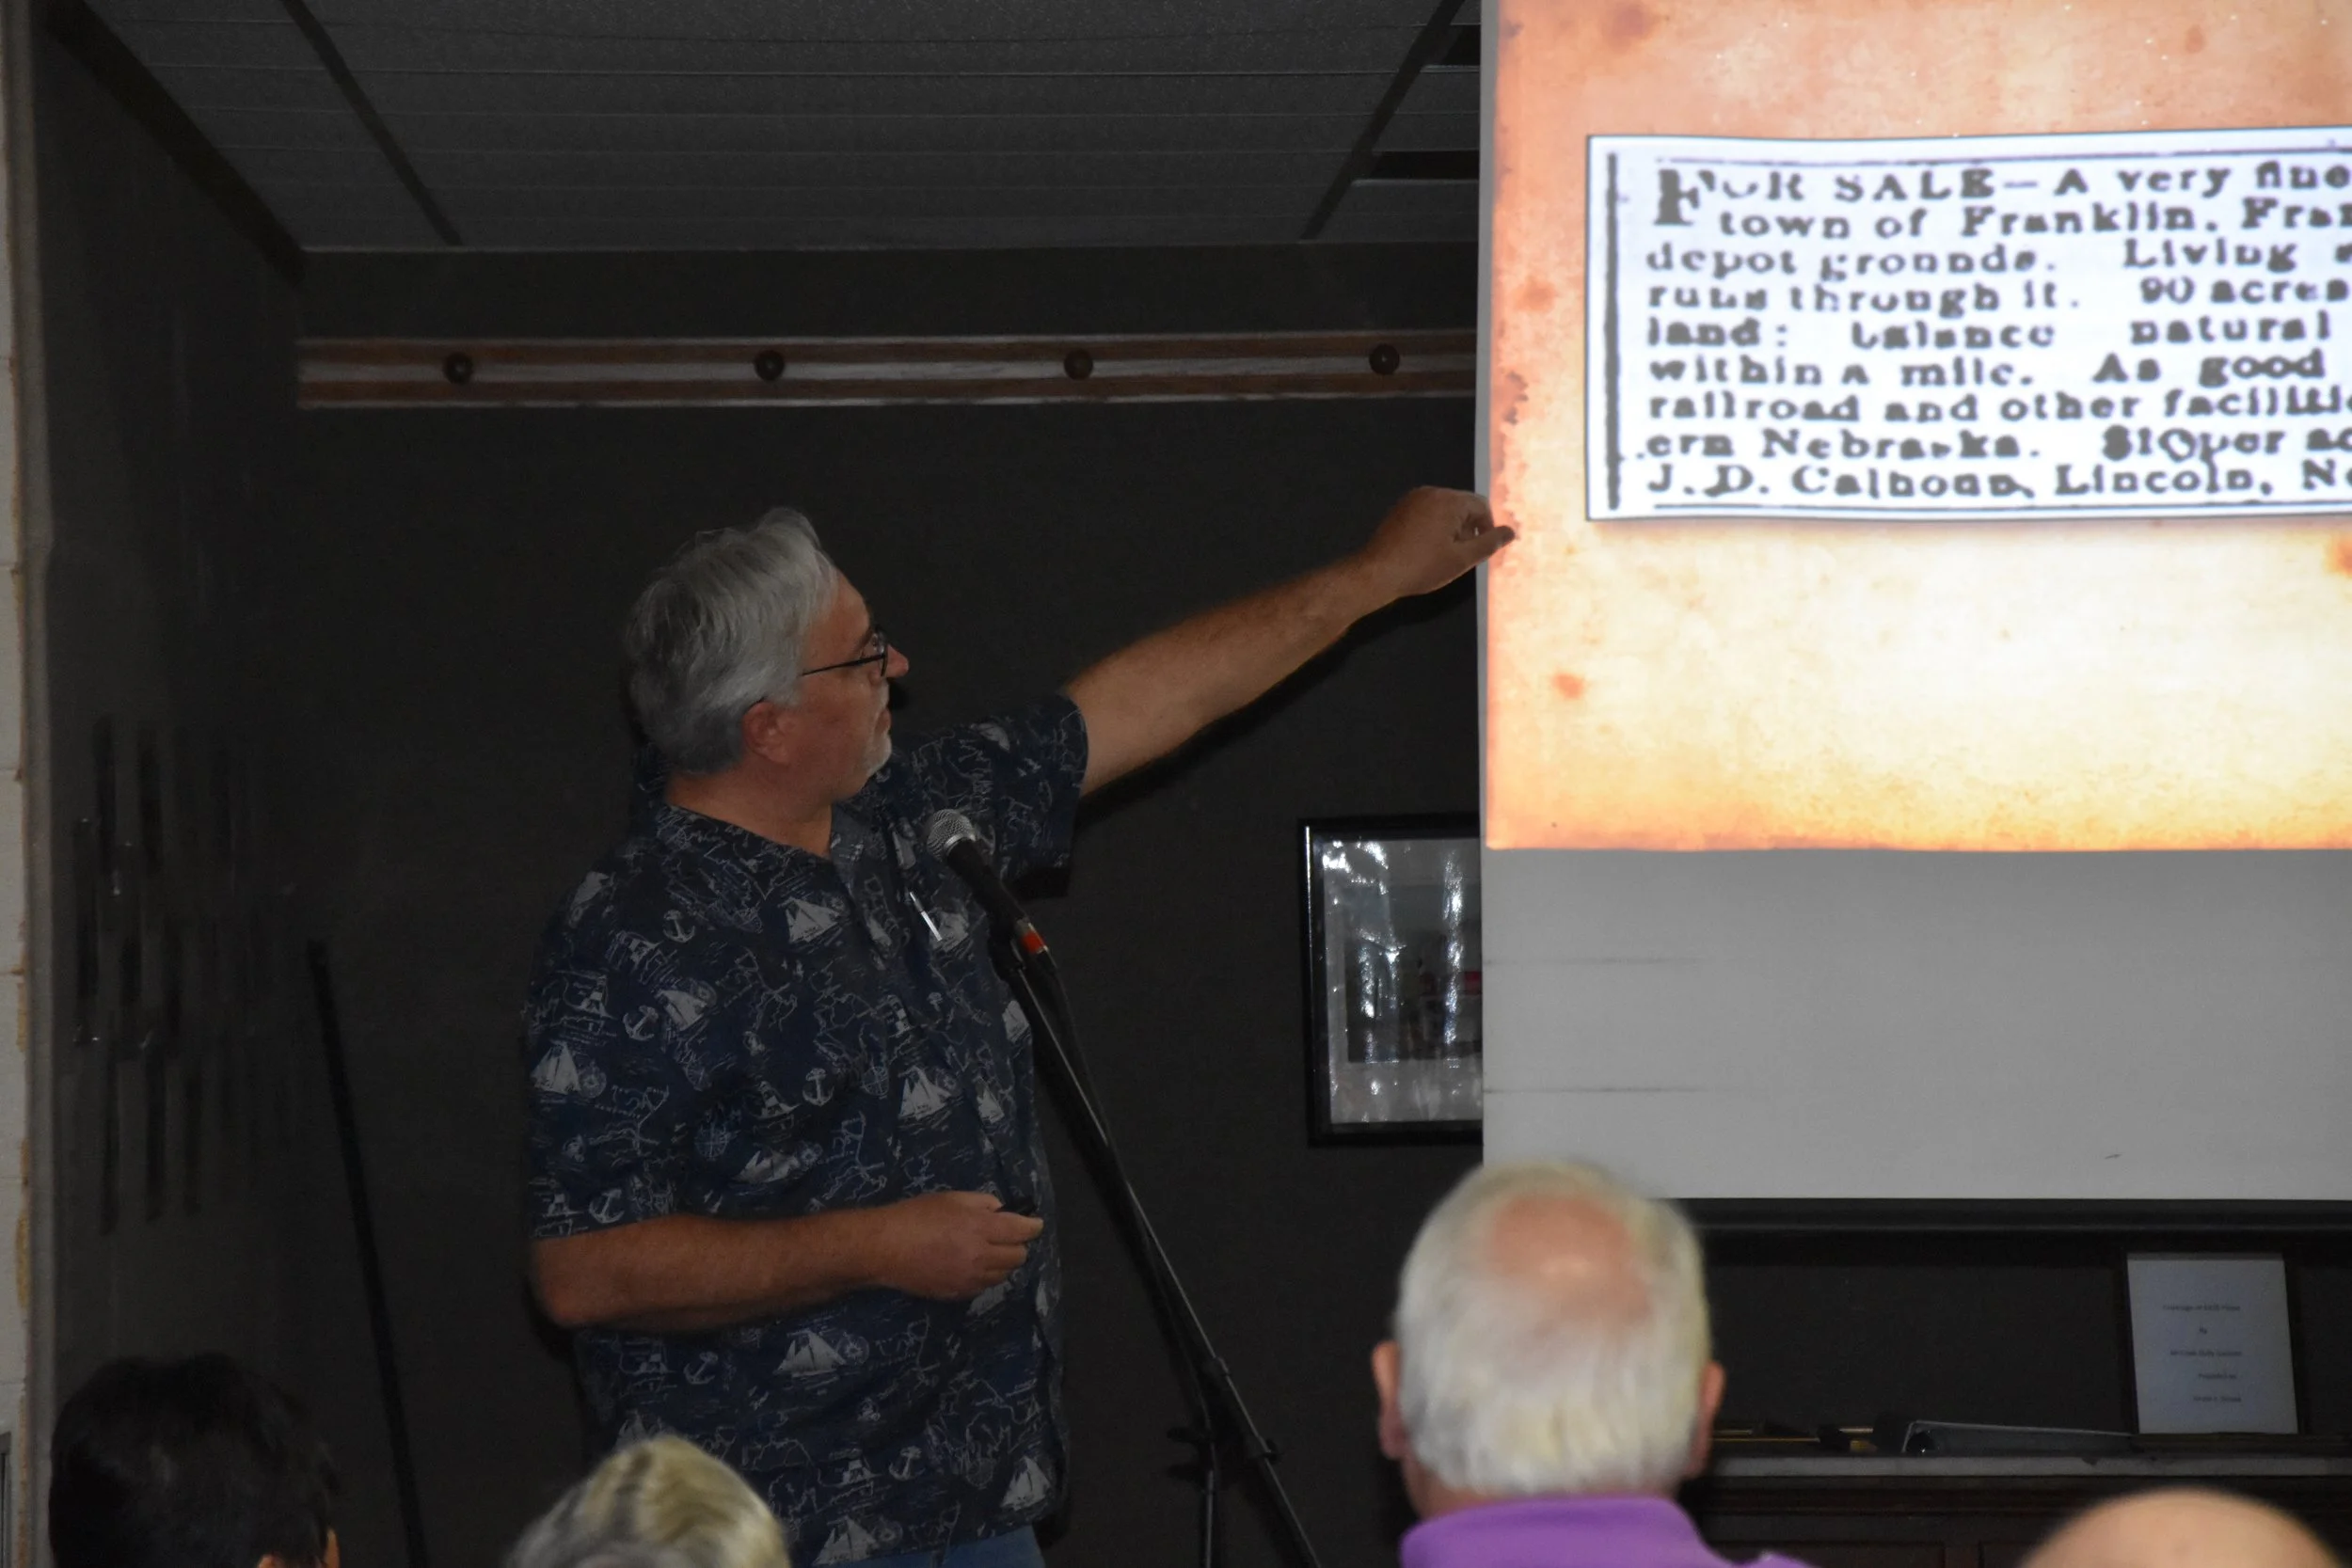 FOR SALE—A very fine
town of Franklin. Fran
depot grounds. Living
runs through it. 90 acres
land: balance natural
within a mile. As good
railroad and other faciliti
ern Nebraska. $10 per ac
J. D. Calhoun, Lincoln, Ne